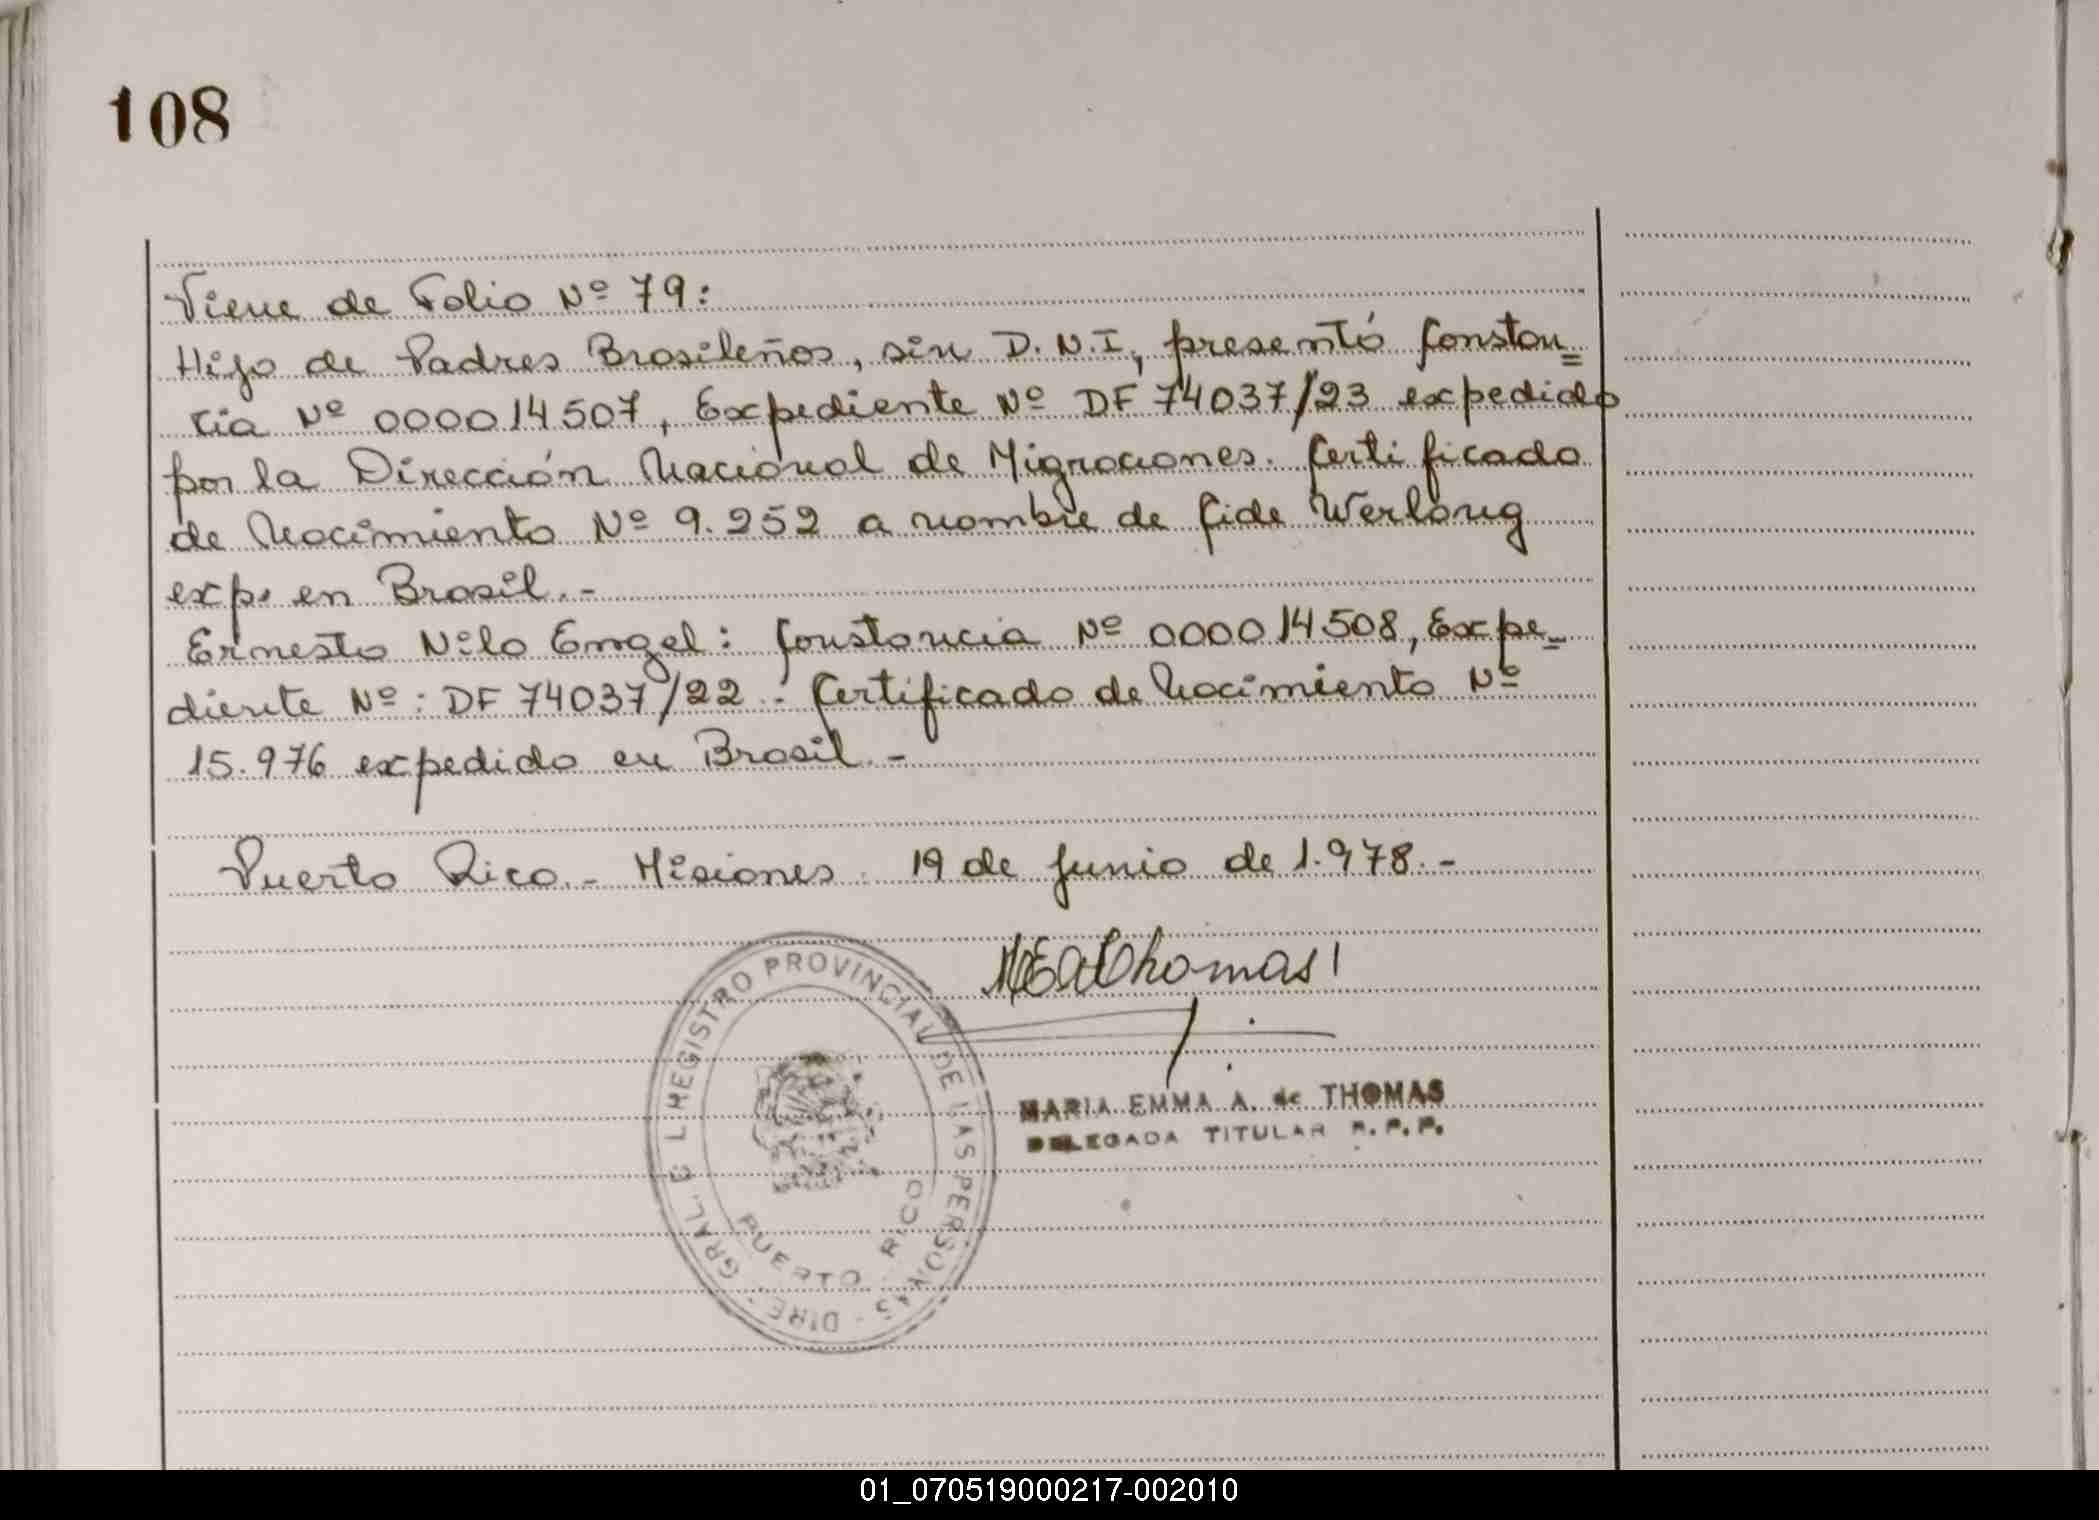 108
Viene de Folio Nº 79:
Hijo de Padres Brasileños, sin D.N.I, presentó Constan=
cia Nº 000014507, Expediente Nº DF 74037/23 expedido
por la Dirección Nacional de Migraciones. Certificado
de Nacimiento Nº 9.252 a nombre de Cide Werlang
exp. en Brasil.-
Ernesto Nilo Engel: Constancia Nº 000014508, Expe=
diente Nº: DF 74037/22. Certificado de Nacimiento Nº
15.976 expedido en Brasil.-
Puerto Rico.- Misiones 19 de Junio de 1.978.-
MEAThomas
MARIA EMMA A. de THOMAS
DELEGADA TITULAR R.P.P.
DIRE. GRAL. E L REGISTRO PROVINCIAL DE LAS PERSONAS -
PUERTO RICO
01_070519000217-002010